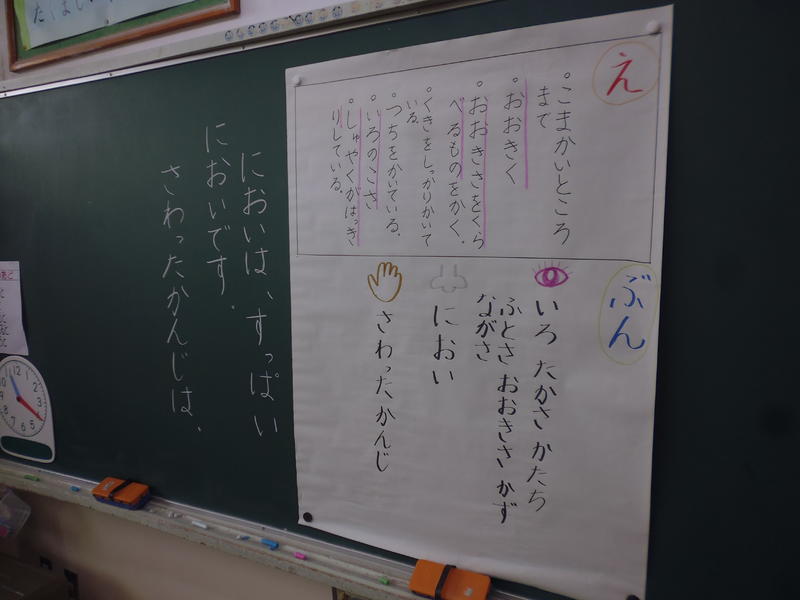 え
。こまかいところ
まで
。おおきく
。おおきさをくら
べるものをかく。
。くきをしっかりかいて
いる。
。つちをかいている。
。いろのこさ
。しゅやくがはっき
りしている。
ぶん
いろ たかさ かたち
ふとさ おおきさ かず
ながさ
におい
さわったかんじ
においは、すっぱい
においです。
さわったかんじは、
12
1
2
3
4
5
6
7
8